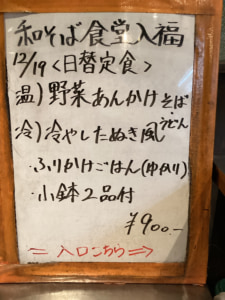 和そば食堂入福
12/19<日替定食>
温)野菜あんかけそば・うどん
冷)冷やしたぬき風
・ふりかけごはん
・小鉢2品付
¥900.-
入口こちら⇒